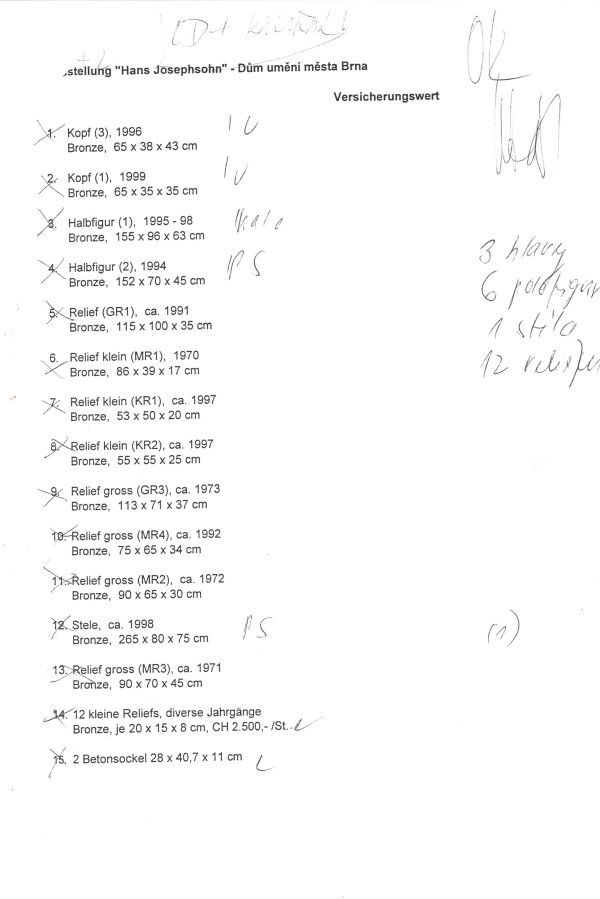 stellung "Hans Josephsohn" - Dům umění města Brna
OK
Versicherungswert
1. Kopf (3), 1996
Bronze, 65 x 38 x 43 cm
2. Kopf (1), 1999
Bronze, 65 x 35 x 35 cm
3. Halbfigur (1), 1995 - 98
Bronze, 155 x 96 x 63 cm
4. Halbfigur (2), 1994 PS
Bronze, 152 x 70 x 45 cm
3 hlavy
6 polofigur
1 stéla
12 reliéfů
5. Relief (GR1), ca. 1991
Bronze, 115 x 100 x 35 cm
6. Relief klein (MR1), 1970
Bronze, 86 x 39 x 17 cm
7. Relief klein (KR1), ca. 1997
Bronze, 53 x 50 x 20 cm
8. Relief klein (KR2), ca. 1997
Bronze, 55 x 55 x 25 cm
9. Relief gross (GR3), ca. 1973
Bronze, 113 x 71 x 37 cm
10. Relief gross (MR4), ca. 1992
Bronze, 75 x 65 x 34 cm
11. Relief gross (MR2), ca. 1972
Bronze, 90 x 65 x 30 cm
12. Stele, ca. 1998 PS (1)
Bronze, 265 x 80 x 75 cm
13. Relief gross (MR3), ca. 1971
Bronze, 90 x 70 x 45 cm
14. 12 kleine Reliefs, diverse Jahrgänge
Bronze, je 20 x 15 x 8 cm, CH 2.500,- /St..
15. 2 Betonsockel 28 x 40,7 x 11 cm